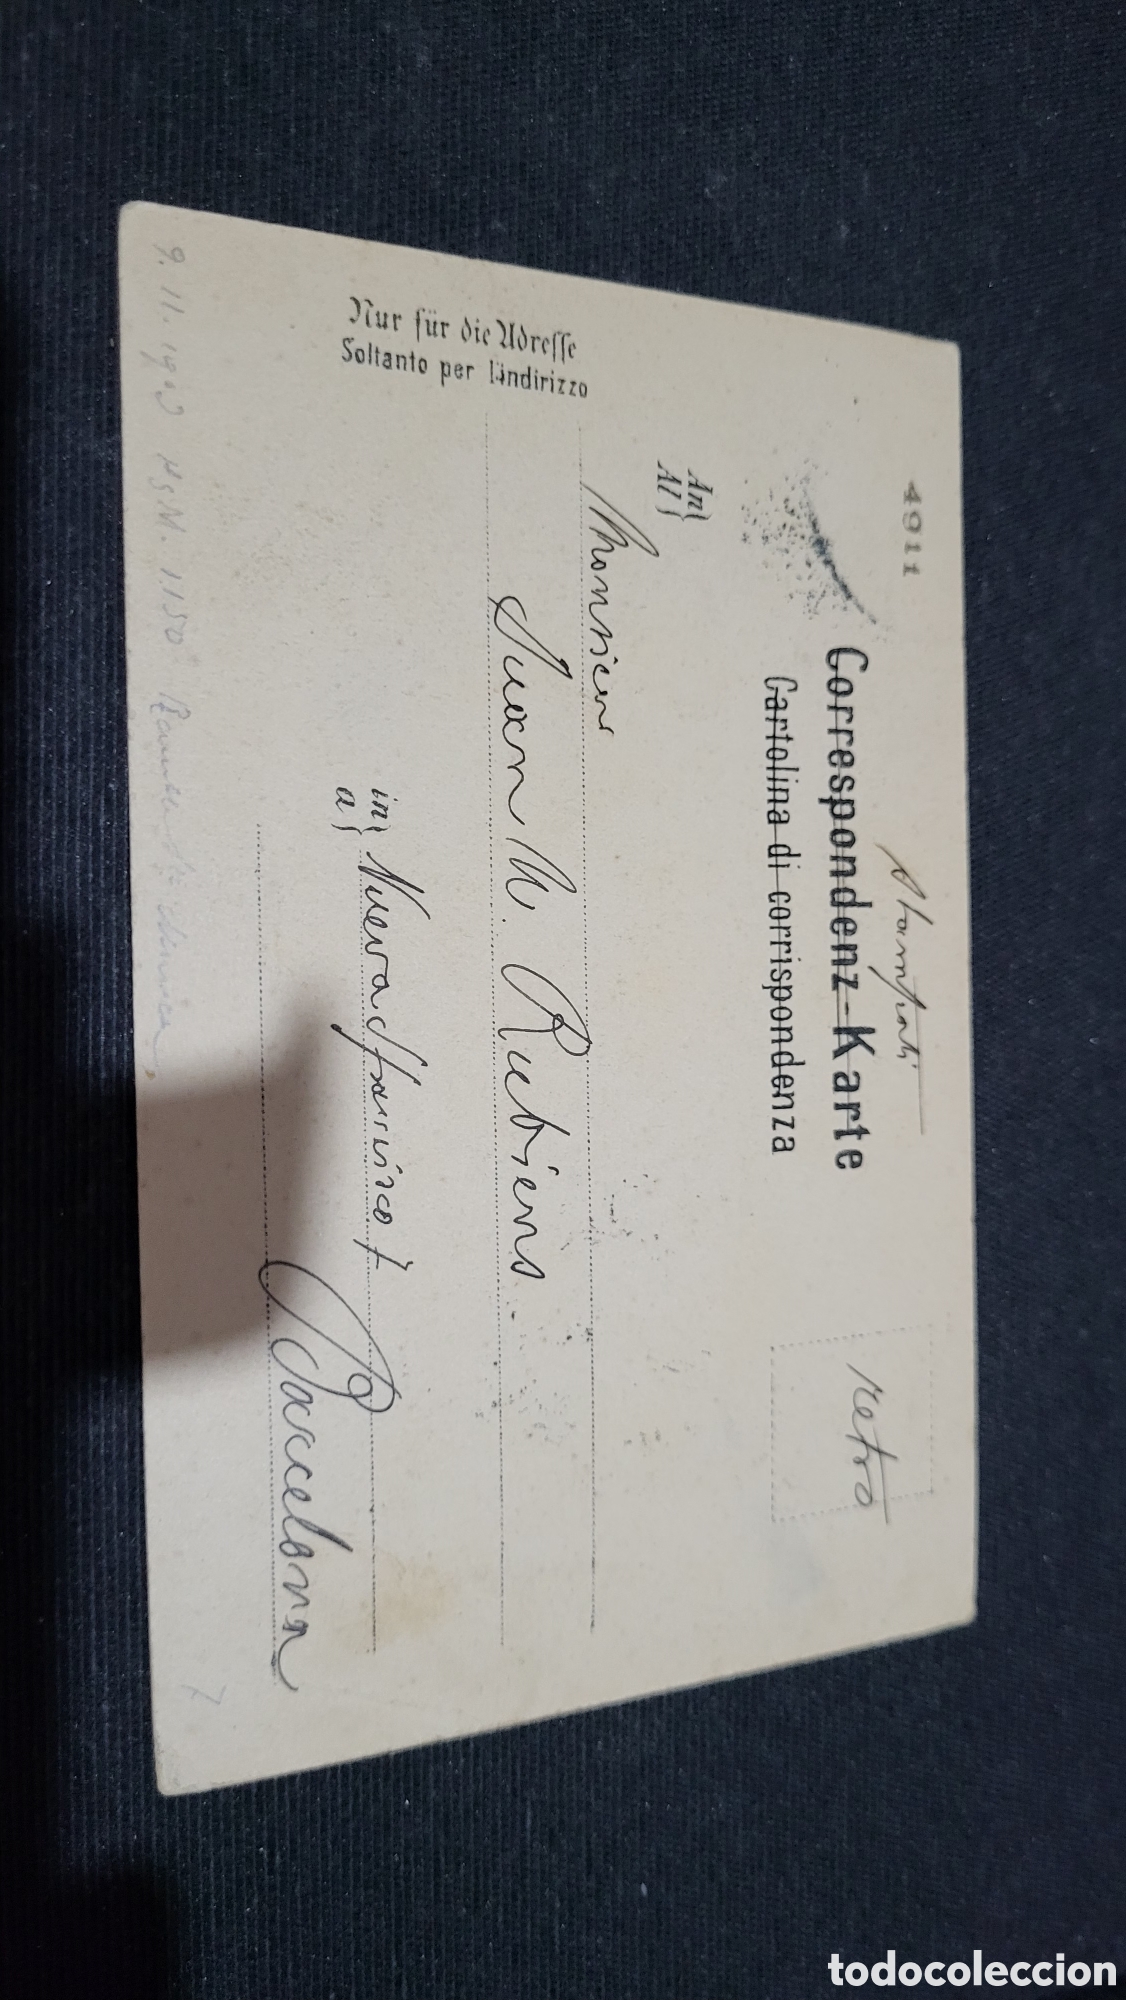 4911
Stampati
Correspondenz-Karte
Cartolina di corrispondenza
retro
An
Al
Monsieur
Juan M. Rubiens
in
a
Nueva S. francisco 7
Barcelona
Nur für die Adresse
Soltanto per l'indirizzo
9.11.1909
7
todocoleccion